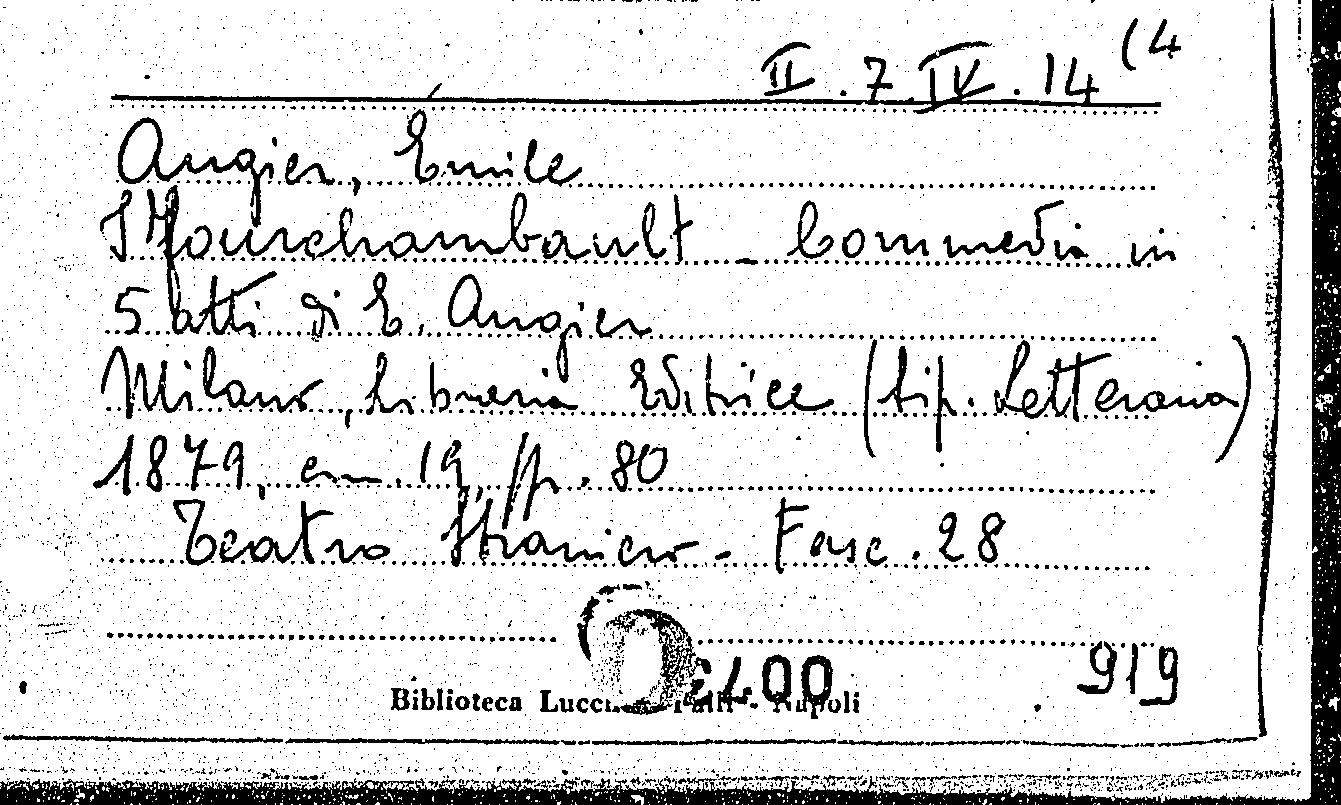 II.7.IV.14(4
Augier, Emile
I Fourchambault - Commedia in
5 atti di E. Augier
Milano, Libreria Editrice (tip. Letteraria)
1879, cm. 19, pp. 80
Teatro Straniero - Fasc. 28
919
Biblioteca Napoli